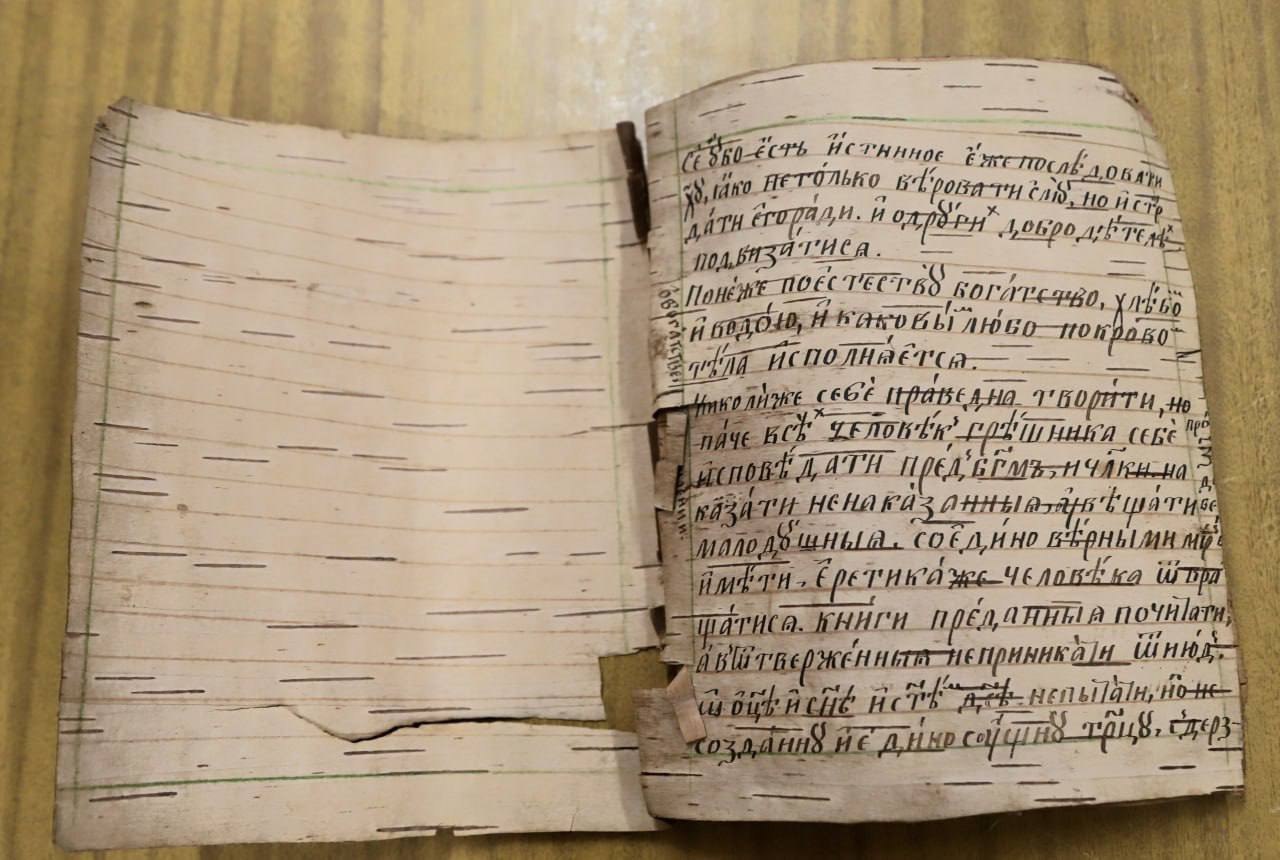 Се́ ꙋ҆́бо є҆́сть и҆́стинное є҆́же послѣ́довати
хрⷭ҇тꙋ̀, ꙗ҆́ко нето́лько вѣ́ровати но и҆ стр
да́ти є҆го̀ ра́ди. и҆ о҆ дрꙋги́хъ добродѣ́телѣхъ
подвиза́тисѧ.
Поне́же по є҆стествꙋ̀ бога́тство, хлѣ́бомъ
и҆ водо́ю, и҆ каковы́мъ лю́бо покро́вомъ
тѣ́ла и҆сполнѧ́етсѧ.
Николи́же себѐ пра́ведна твори́ти, но
па́че всѣ́хъ человѣ́къ грѣ́шника себѐ
и҆сповѣ́дати пред̾ бг҃мъ, и҆ чл҃ки. на
каза́ти ненака́занныѧ, ᲂу҆вѣща́ти
малодꙋ́шныѧ. со є҆ди́новѣ́рными ми́ръ
и҆мѣ́ти. є҆ретика́же человѣ́ка ѿвра
ща́тисѧ. кни́ги пре́данныѧ почита́ти,
а҆ ѿтверже́нныѧ неприника́ти ѿню́дъ.
ѡ҆ ѻ҆ц҃ѣ̀ и҆ сн҃ѣ и҆ ст҃ѣ́мъ дс҃ѣ не пыта́ти, но не
созда́ннꙋ и҆ є҆ди́носꙋ́щнꙋ трⷪ҇цꙋ, с̾дерз-